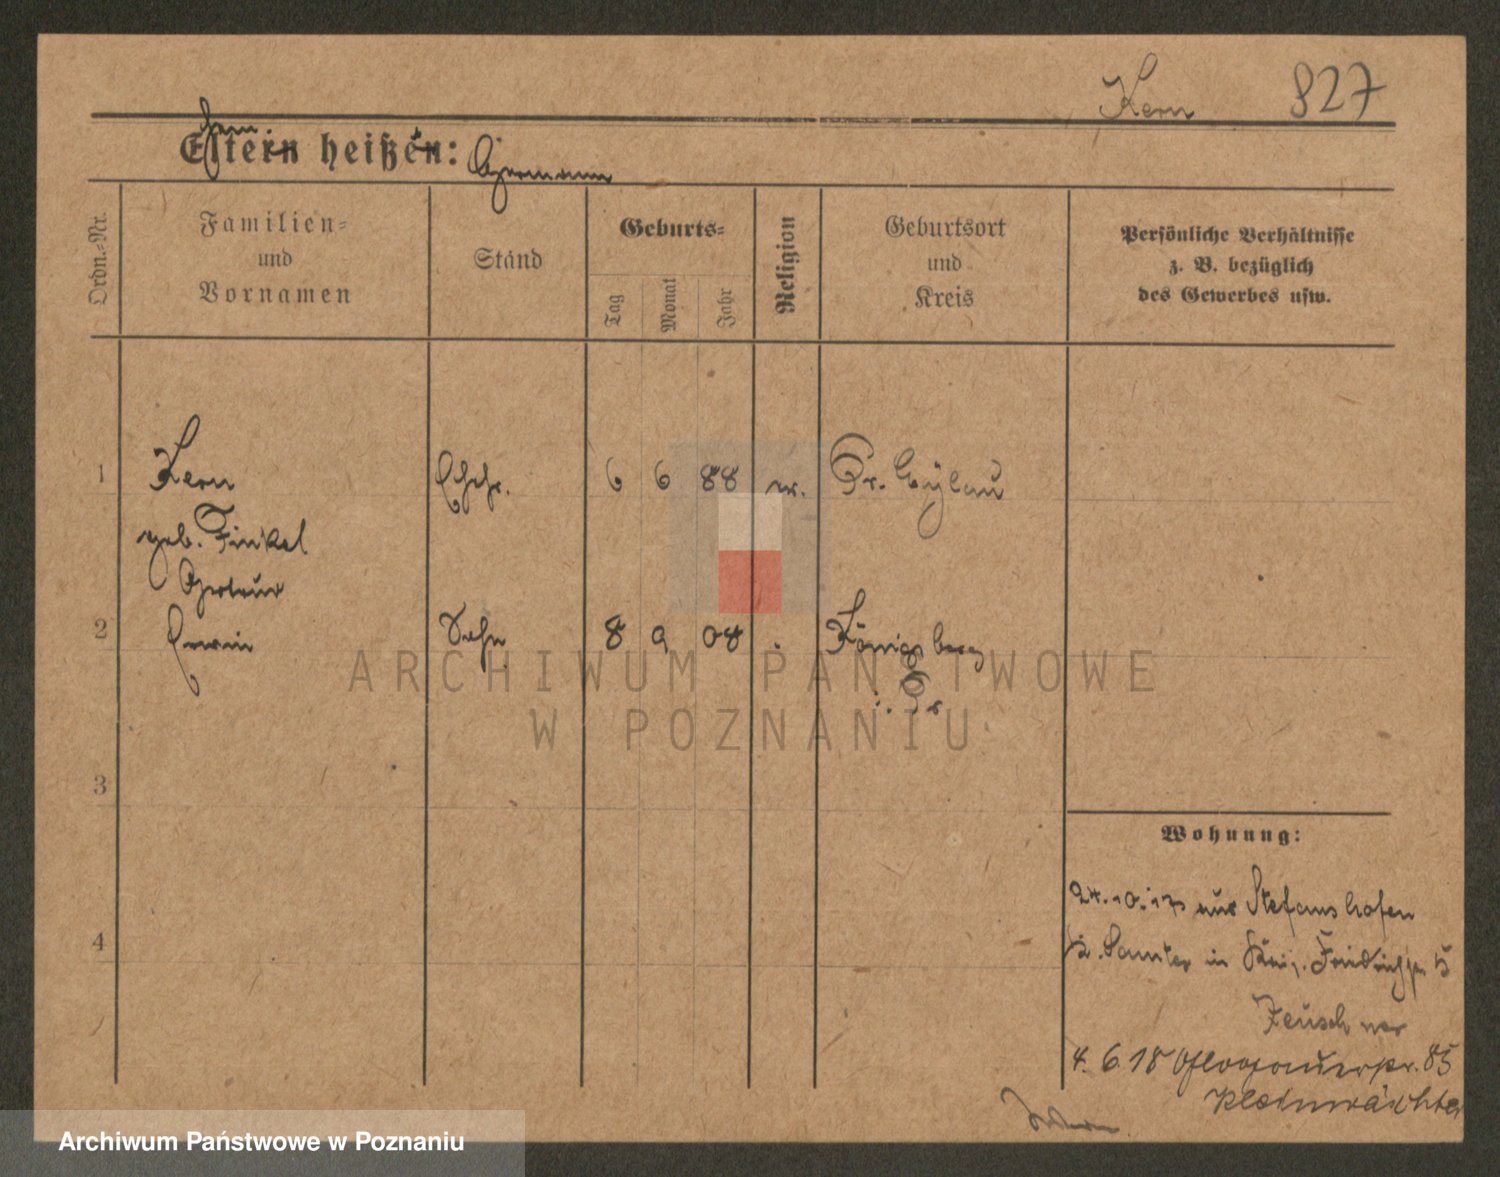 Kern 827
Eltern heißen: Hermann
Ordn.-Nr.
Familien-
und
Vornamen
Stand
Geburts-
Tag
Monat
Jahr
Religion
Geburtsort
und
Kreis
Persönliche Verhältnisse
z. B. bezüglich
des Gewerbes usw.
1 Kern Ehefr. 6 6 88 ev. Pr. Eylau
geb. Finkel
Gertrud
2 Erwin Sohn 8 9 08 Königsberg
i. Pr
3
4
Wohnung:
24.10.17 aus Stefanshofen
Kr. Samter in 5
Zeuschner
4. 6. 18 Glogauerstr. 85
Kleinwächter
ARCHIWUM PAŃSTWOWE
W POZNANIU
Archiwum Państwowe w Poznaniu